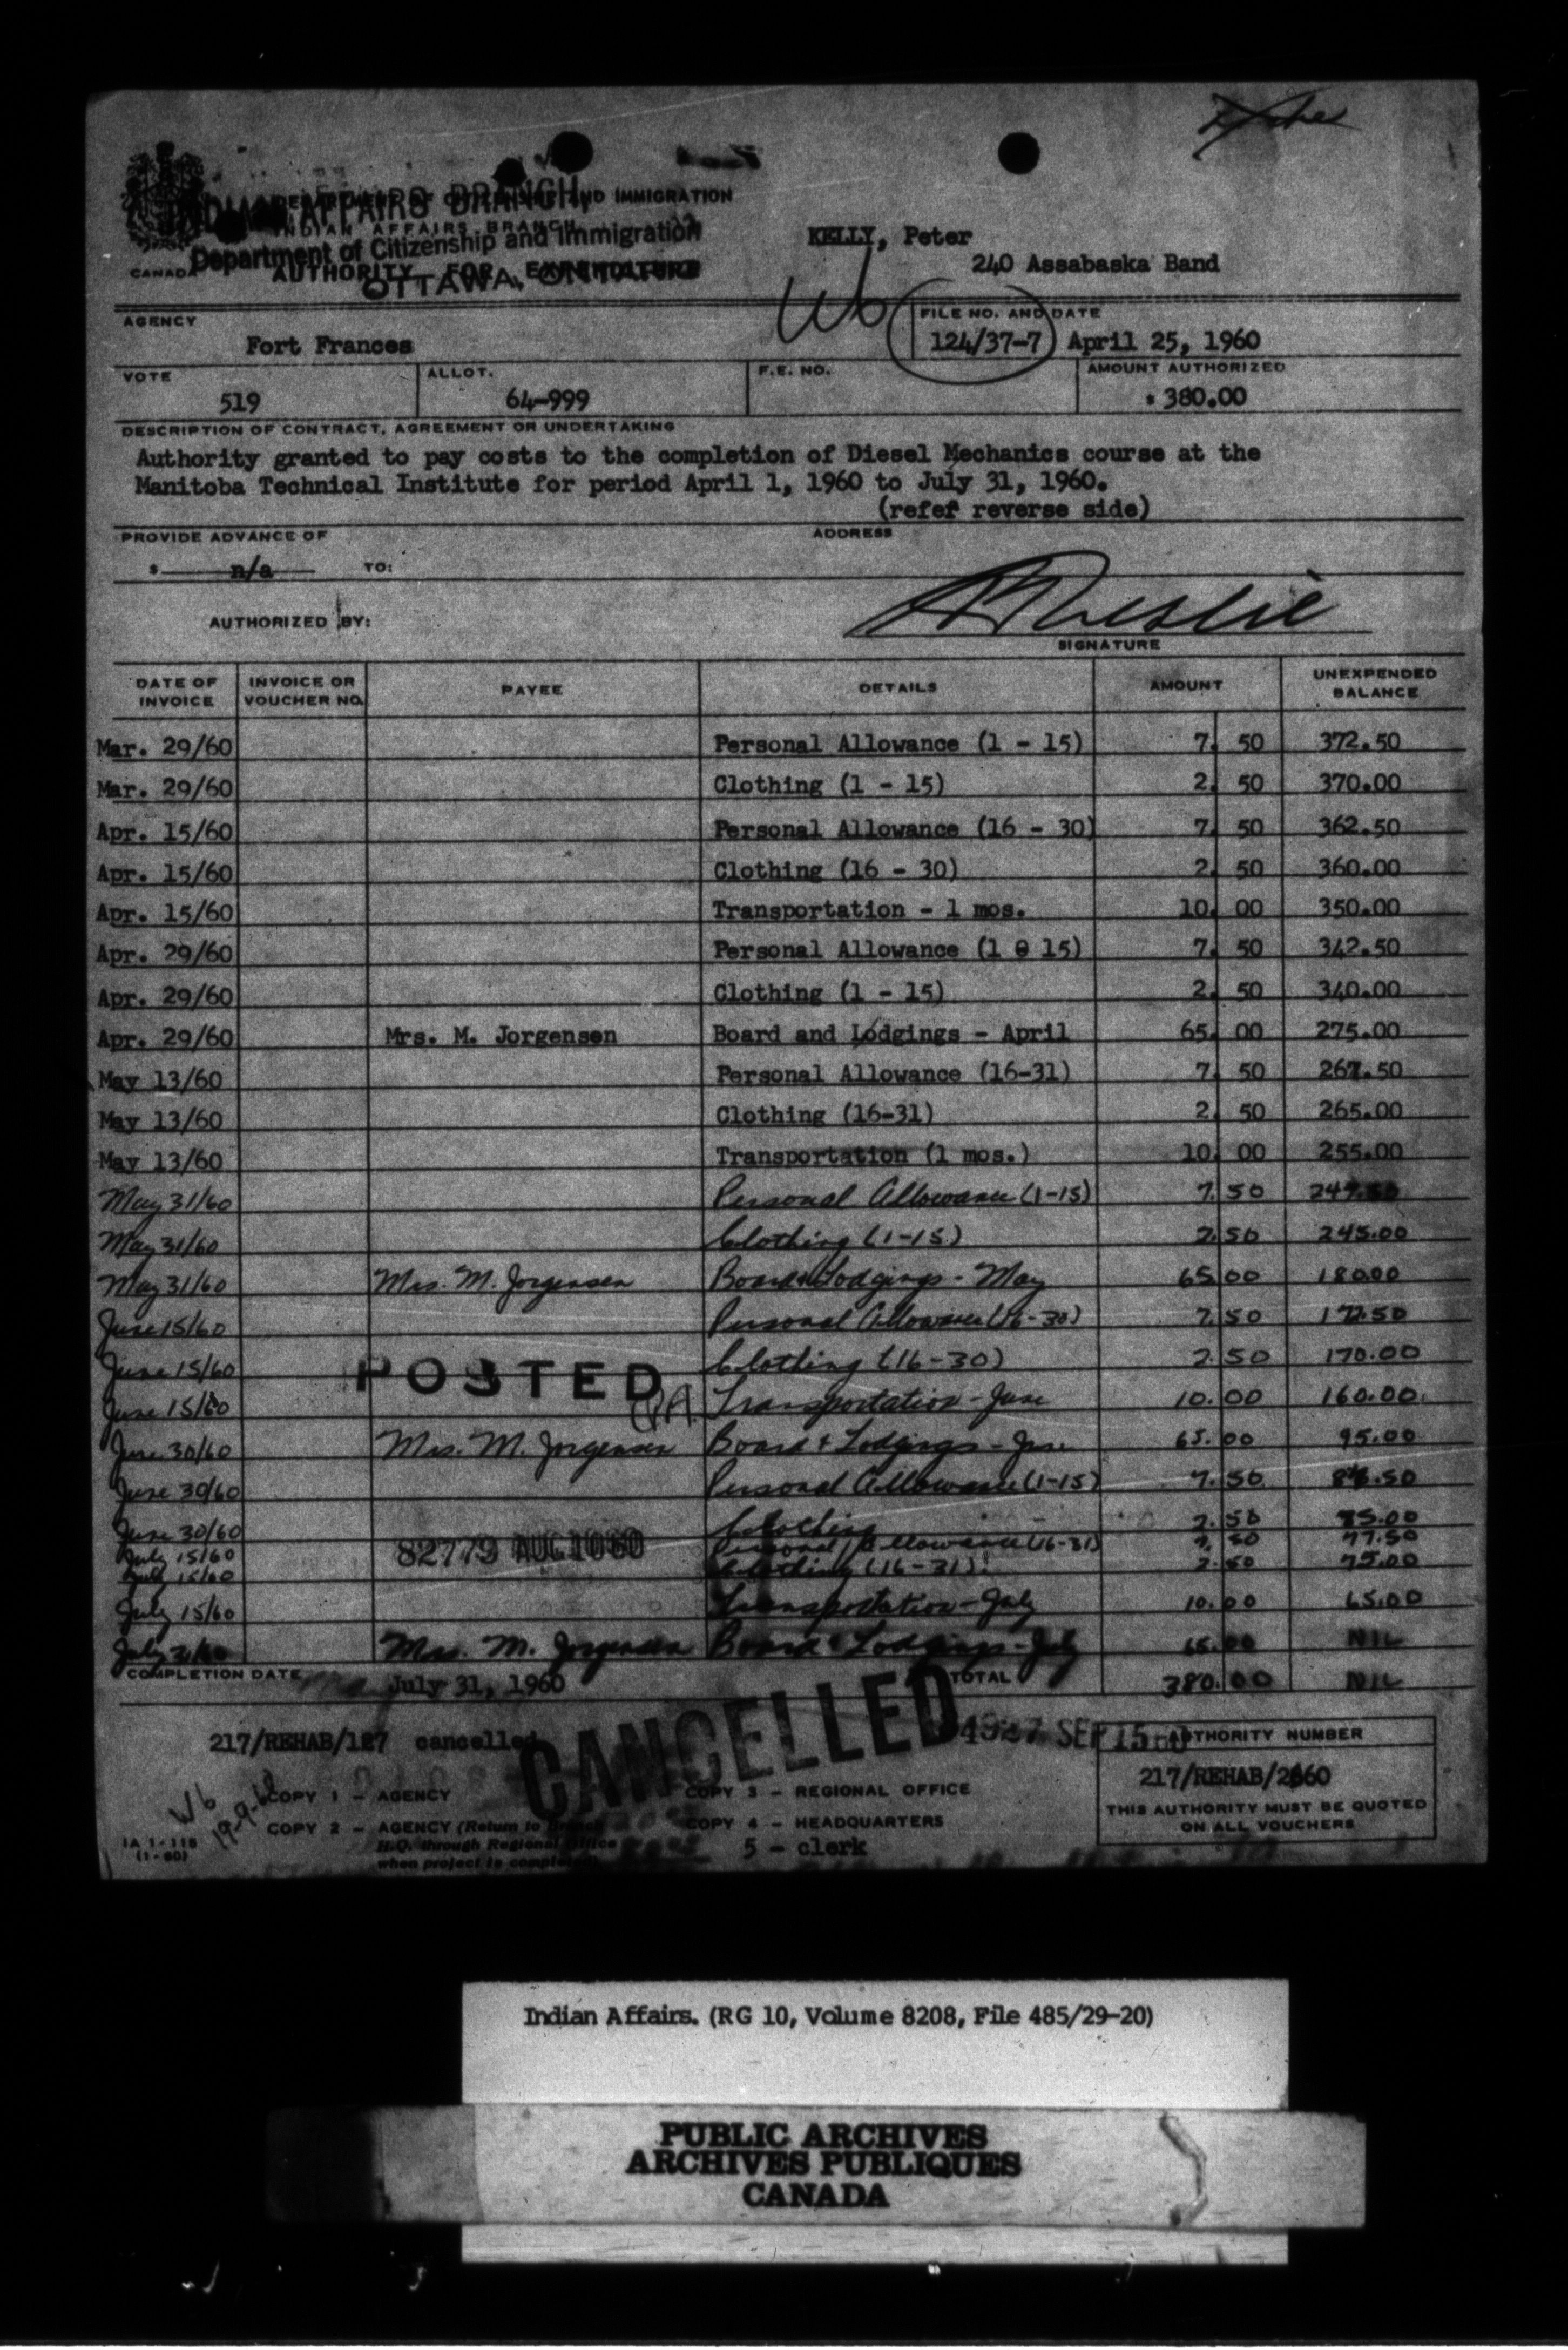 DEPARTMENT OF CITIZENSHIP AND IMMIGRATION
INDIAN AFFAIRS BRANCH,
INDIAN AFFAIRS BRANCH
Department of Citizenship and Immigration
CANADA
AUTHORITY FOR EXPENDITURE
OTTAWA, ONTARIO
KELLY, Peter
240 Assabaska Band
Wb
AGENCY
Fort Frances
FILE NO. AND DATE
124/37-7 April 25, 1960
VOTE
519
ALLOT.
64-999
F.E. NO.
AMOUNT AUTHORIZED
$ 380.00
DESCRIPTION OF CONTRACT, AGREEMENT OR UNDERTAKING
Authority granted to pay costs to the completion of Diesel Mechanics course at the
Manitoba Technical Institute for period April 1, 1960 to July 31, 1960.
(refef reverse side)
PROVIDE ADVANCE OF
ADDRESS
$ n/a TO:
AUTHORIZED BY:
SIGNATURE
DATE OF INVOICE INVOICE OR VOUCHER NO. PAYEE DETAILS AMOUNT UNEXPENDED BALANCE
Mar. 29/60 Personal Allowance (1 - 15) 7. 50 372.50
Mar. 29/60 Clothing (1 - 15) 2. 50 370.00
Apr. 15/60 Personal Allowance (16 - 30) 7. 50 362.50
Apr. 15/60 Clothing (16 - 30) 2. 50 360.00
Apr. 15/60 Transportation - 1 mos. 10. 00 350.00
Apr. 29/60 Personal Allowance (1 0 15) 7. 50 342.50
Apr. 29/60 Clothing (1 - 15) 2. 50 340.00
Apr. 29/60 Mrs. M. Jorgensen Board and Lodgings - April 65. 00 275.00
May 13/60 Personal Allowance (16-31) 7. 50 267.50
May 13/60 Clothing (16-31) 2. 50 265.00
May 13/60 Transportation (1 mos.) 10. 00 255.00
May 31/60 Personal Allowance (1-15) 7.50 247.50
May 31/60 Clothing (1-15) 2.50 245.00
May 31/60 Mrs. M. Jorgensen Board & Lodgings - May 65 00 180.00
June 15/60 Personal Allowance (16-30) 7.50 172.50
June 15/60 Clothing (16-30) 2.50 170.00
POSTED
June 15/60 Transportation - June 10.00 160.00
June 30/60 Mrs. M. Jorgensen Board & Lodgings - June 65.00 95.00
June 30/60 Personal Allowance (1-15) 7.50 87.50
June 30/60 Clothing 2.50 85.00
July 15/60 Personal Allowance (16-31) 7.50 77.50
82779 AUG 10 60
July 15/60 Clothing (16-31) 2.50 75.00
July 15/60 Transportation - July 10.00 65.00
July 31/60 Mrs. M. Jorgensen Board & Lodgings - July 65.00 NIL
COMPLETION DATE July 31, 1960 TOTAL 380.00 NIL
CANCELLED
217/REHAB/127 cancelled
SEP 15 60
AUTHORITY NUMBER
217/REHAB/2660
THIS AUTHORITY MUST BE QUOTED
ON ALL VOUCHERS
Wb
19-9-60
COPY 1 - AGENCY
COPY 3 - REGIONAL OFFICE
COPY 2 - AGENCY (Return to Branch
H.Q. through Regional Office
when project is completed)
COPY 4 - HEADQUARTERS
5 - clerk
IA 1-118
(1-60)
Indian Affairs. (RG 10, Volume 8208, File 485/29-20)
PUBLIC ARCHIVES
ARCHIVES PUBLIQUES
CANADA